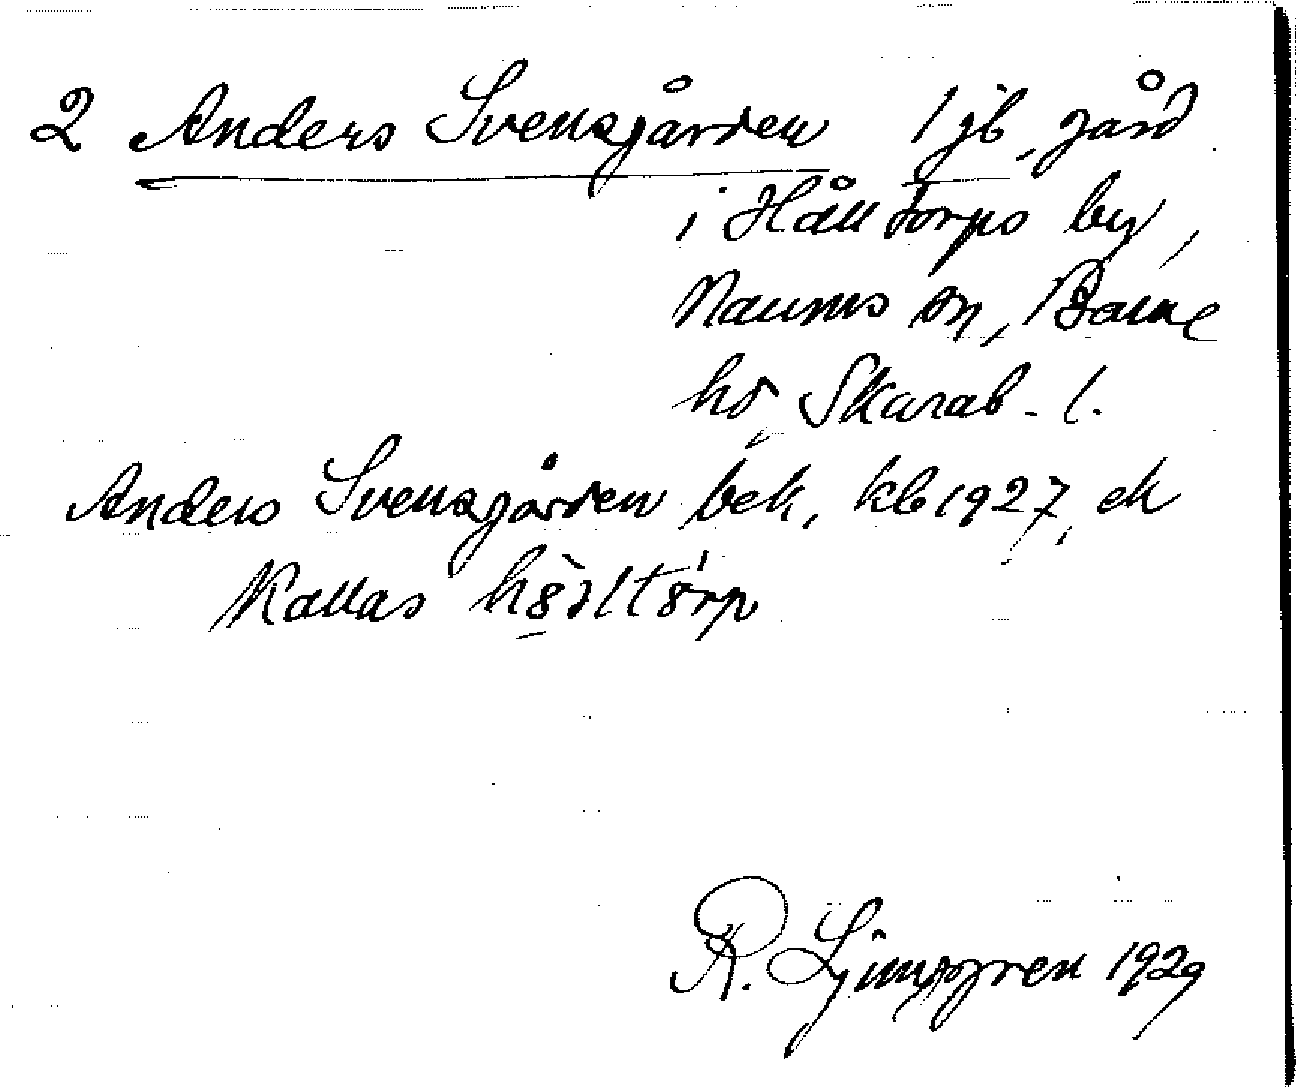 2 Anders Svensgården 1 jb, gård
i Hålltorps by,
Naums sn, Barne
hd Skarab. l.
Anders Svensgården bek, kb 1927, ek
Kallas
R. Ljunggren 1929